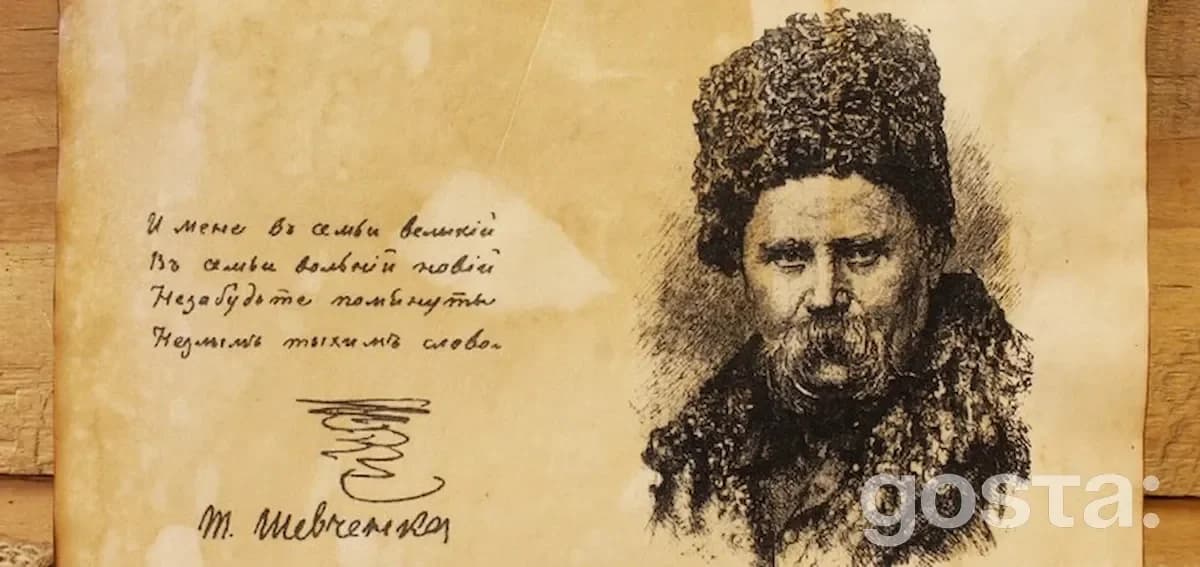 И мене въ семьи великій
Въ семьи вольній новій
Незабудьте помьянуты
Незлымъ тыхимъ словом
Т. Шевченко
gosta: